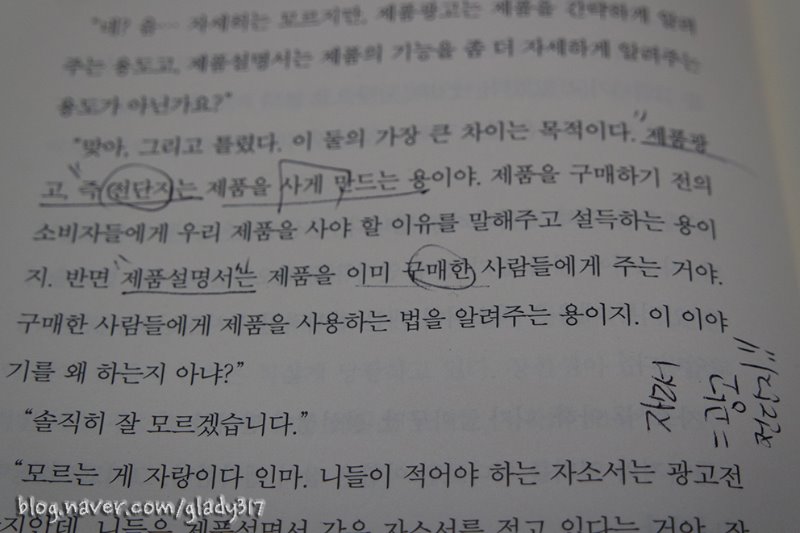 "네? 음… 자세히는 모르지만, 제품광고는 제품을 간략하게 알려
주는 용도고, 제품설명서는 제품의 기능을 좀 더 자세하게 알려주는
용도가 아닌가요?"
"맞아, 그리고 틀렸다. 이 둘의 가장 큰 차이는 목적이다. 제품광
고, 즉 전단지는 제품을 사게 만드는 용이야. 제품을 구매하기 전의
소비자들에게 우리 제품을 사야 할 이유를 말해주고 설득하는 용이
지. 반면 제품설명서는 제품을 이미 구매한 사람들에게 주는 거야.
구매한 사람들에게 제품을 사용하는 법을 알려주는 용이지. 이 이야
기를 왜 하는지 아냐?"
"솔직히 잘 모르겠습니다."
"모르는 게 자랑이다 인마. 니들이 적어야 하는 자소서는 광고전
단지인데, 니들은 제품설명서 같은 자소서를 적고 있다는 거야. 자
= 광고
전단지!!
blog.naver.com/glady317